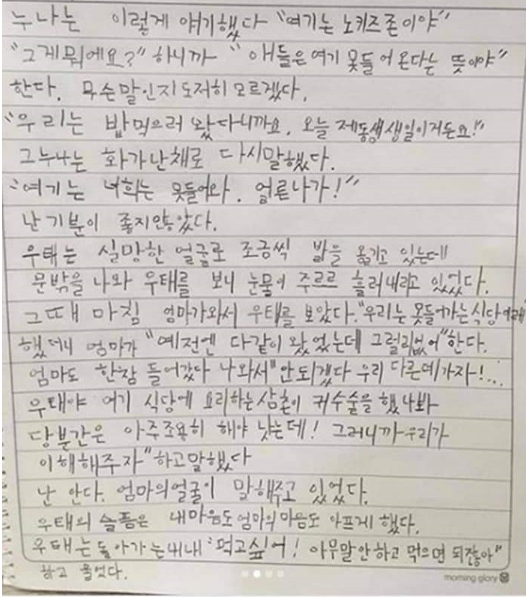 누나는 이렇게 얘기했다 "여기는 노키즈존이야"
"그게뭐에요?" 하니까 "애들은 여기 못들어 온다는 뜻이야"
한다. 무슨말인지 도저히 모르겠다.
"우리는 밥먹으러 왔다니까요. 오늘 제동생생일이거든요!"
그누나는 화가난채로 다시말했다.
"여기는 너희는 못들어와. 얼른나가!"
난 기분이 좋지않았다.
우태는 실망한 얼굴로 조금씩 발을 옮기고 있는데
문밖을 나와 우태를 보니 눈물이 주르르 흘러내리고 있었다.
그때 마침 엄마가와서 우태를 보았다. "우리는 못들어가는 식당이래"
했더니 엄마가 "예전엔 다같이 왔었는데 그럴리없어" 한다.
엄마도 한참 들어갔다 나와서 "안되겠다 우리 다른데가자!...
우태야 여기 식당에 요리하는 삼촌이 귀수술을 했나봐
당분간은 아주조용히 해야 낫는데! 그러니까 우리가
이해해주자" 하고 말했다
난 안다. 엄마의 얼굴이 말해주고 있었다.
우태의 슬픔은 내마음도 엄마의 마음도 아프게 했다.
우태는 돌아가는내내 "먹고싶어! 아무말안하고 먹으면 되잖아"
하고 울었다.
morning glory